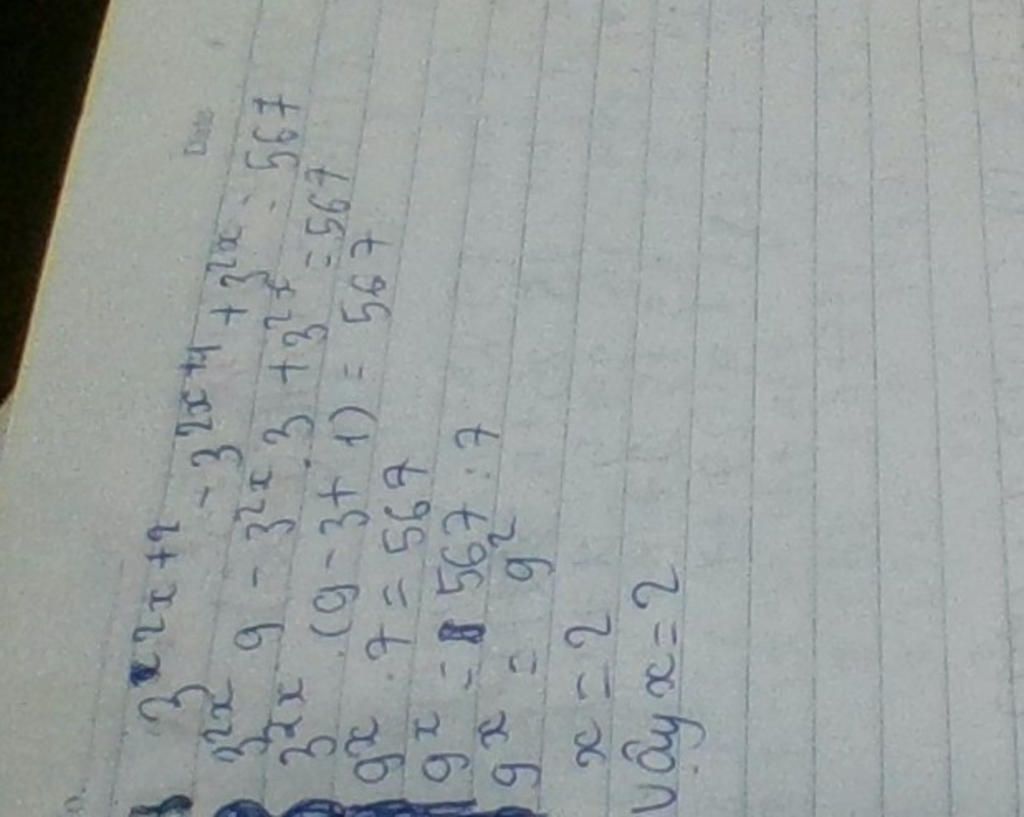 Date
3^2x+2 - 3^2x+1 + 3^2x = 567
3^2x . 9 - 3^2x . 3 + 3^2x = 567
3^2x . (9 - 3 + 1) = 567
9^x . 7 = 567
9^x = 567 : 7
9^x = 9^2
x = 2
Vậy x = 2